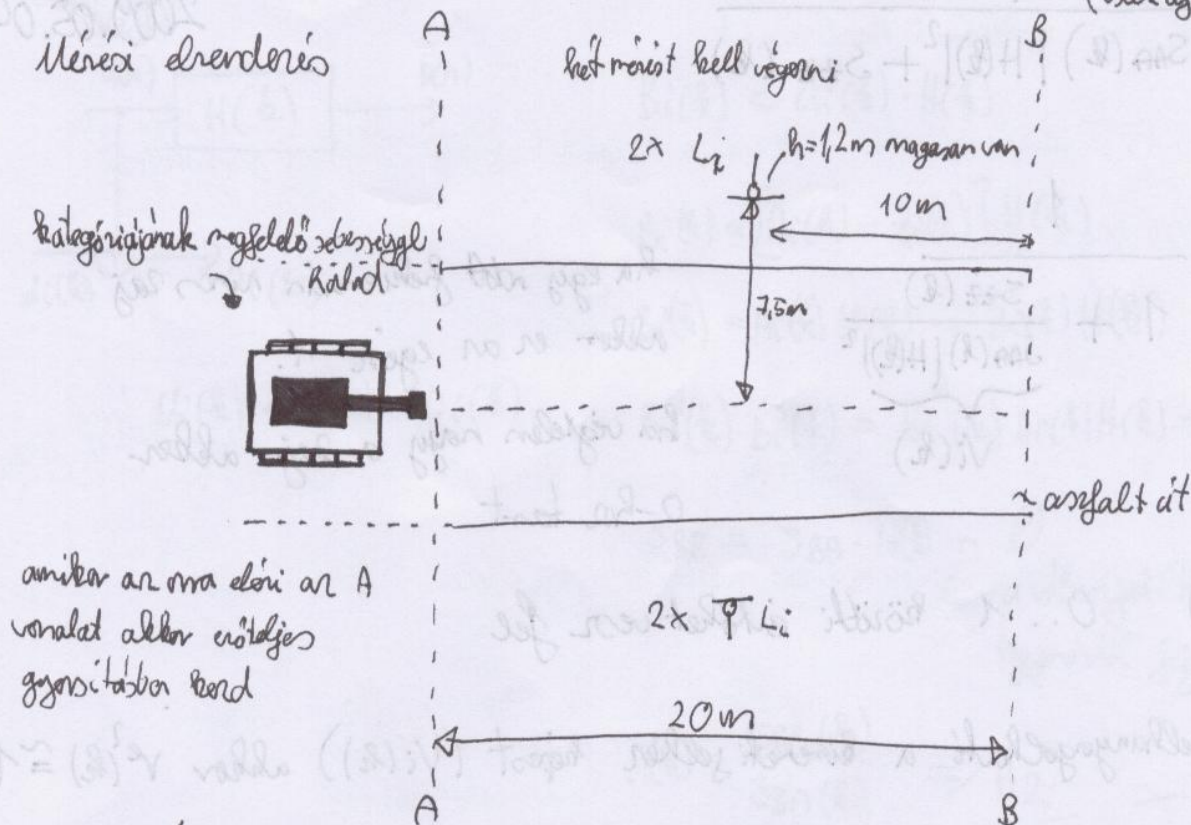 A
B
Mérési elrendezés
két mérést kell végezni
2x Li
h=1,2m magasan van
10m
kategóriájának megfelelő sebességgel
halad
7,5m
aszfalt út
amikor az orra eléri az A
vonalat akkor erőteljes
gyorsításba kezd
2x Li
20m
A
B